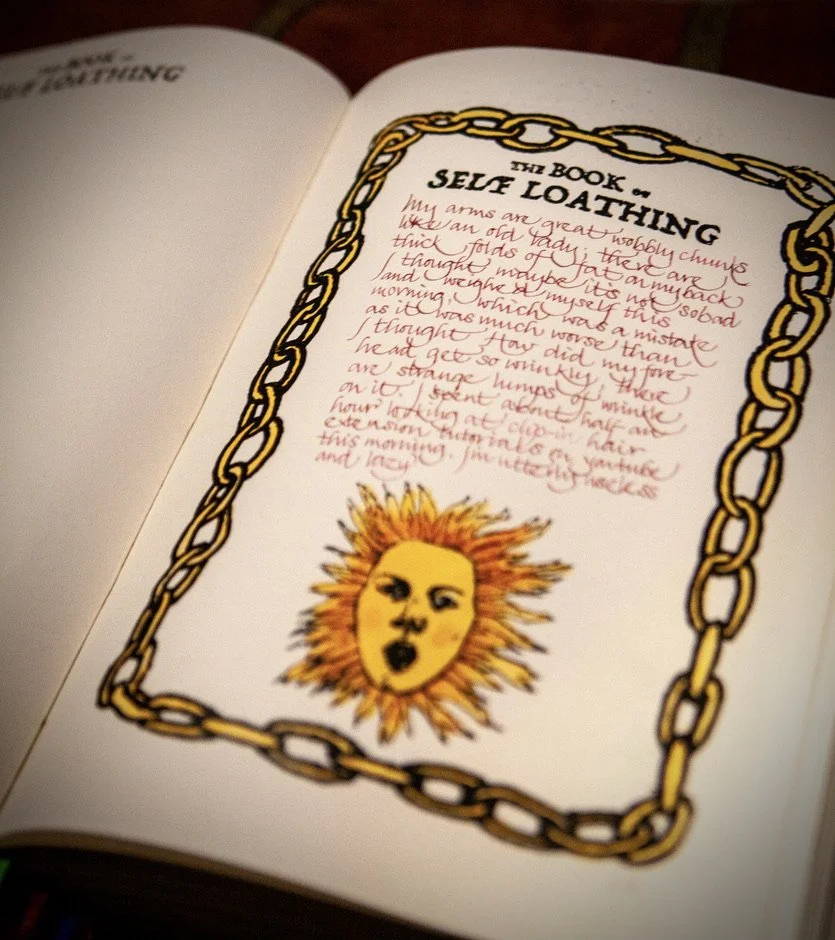 THE BOOK OF
SELF LOATHING
THE BOOK OF
SELF LOATHING
My arms are great wobbly chunks
like an old lady; there are
thick folds of fat on my back
I thought maybe it's not so bad
and weighed myself this
morning, which was a mistake
as it was much worse than
I thought. How did my fore-
head get so wrinkly, there
are strange lumps of wrinkle
on it. I spent about half an
hour looking at clip-in hair
extension tutorials on youtube
this morning. I'm utterly useless
and lazy